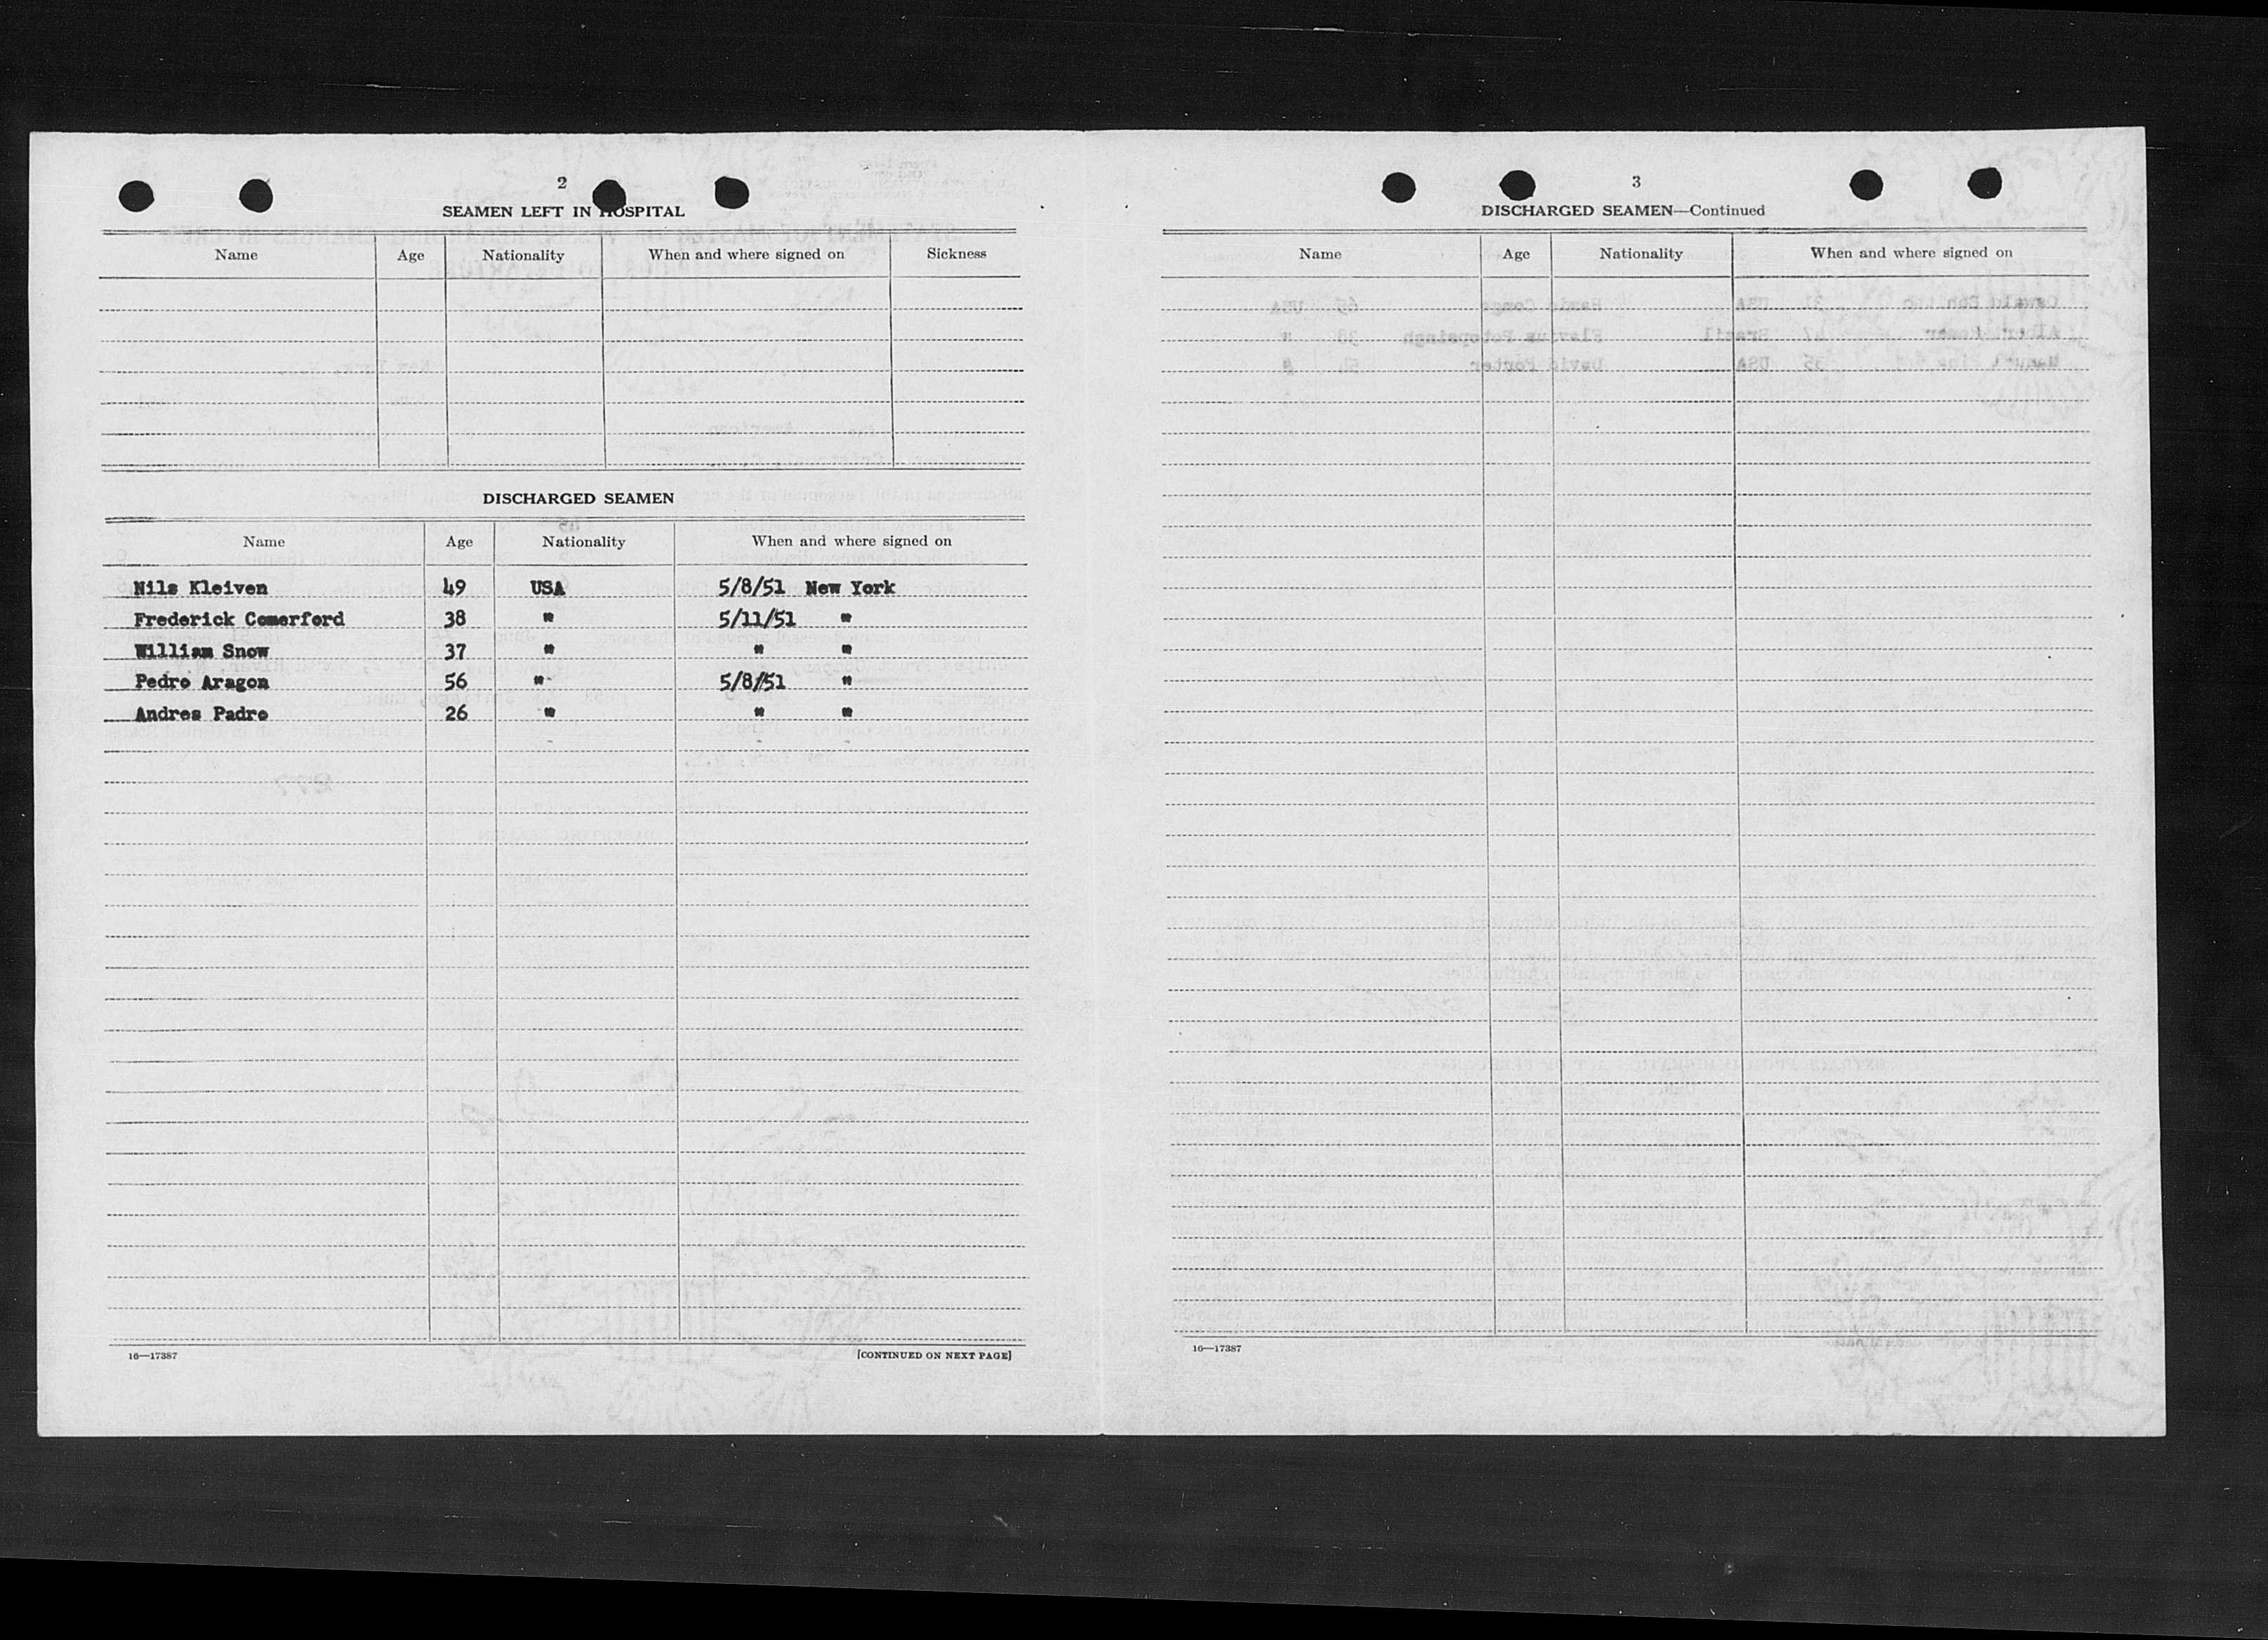 2
SEAMEN LEFT IN HOSPITAL
Name Age Nationality When and where signed on Sickness
DISCHARGED SEAMEN
Name Age Nationality When and where signed on
Nils Kleiven 49 USA 5/8/51 New York
Frederick Comerford 38 " 5/11/51 "
William Snow 37 " " "
Pedro Aragon 56 " 5/8/51 "
Andres Padro 26 " " "
16—17387 [CONTINUED ON NEXT PAGE]
3
DISCHARGED SEAMEN—Continued
Name Age Nationality When and where signed on
16—17387